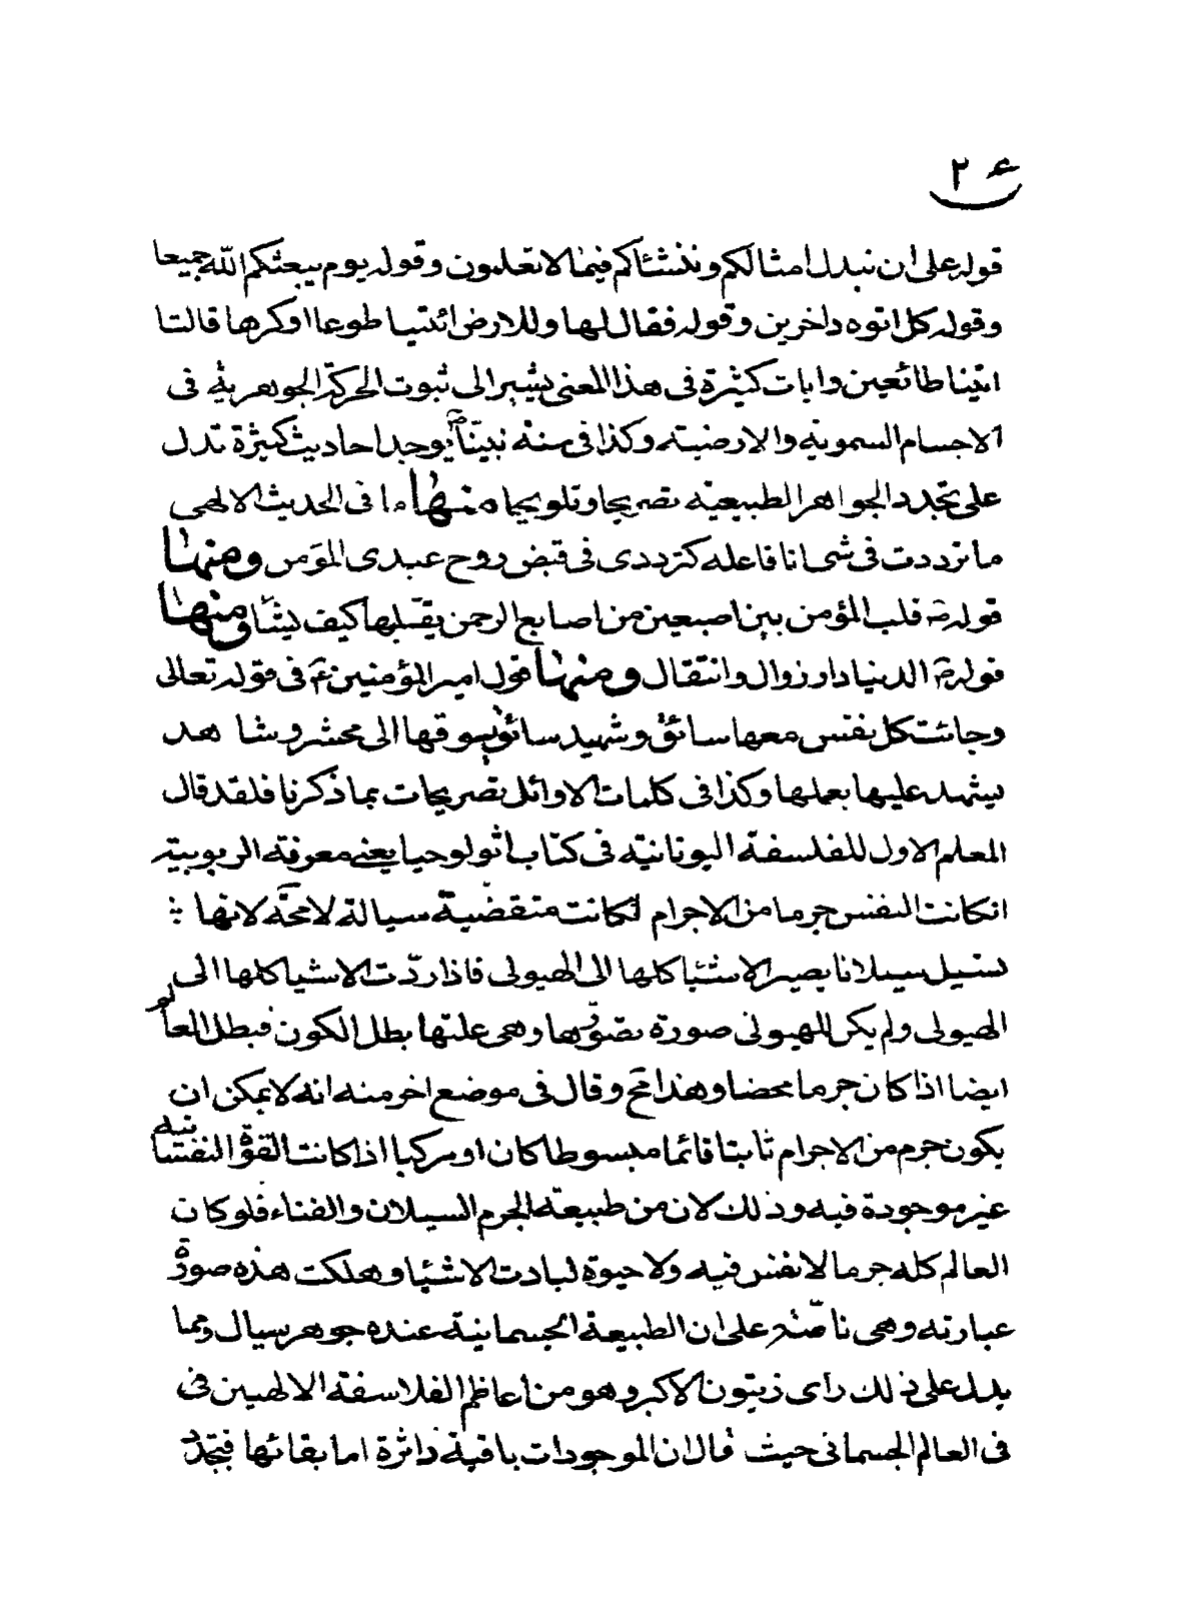 ٢٤
قوله على ان نبدل امثالكم وننشئاكم فيما لا تعلمون وقوله يوم يبعثكم اللّه جميعا
وقوله كل اتوه داخرين وقوله فقال لها وللارض ائتيا طوعا او كرها قالتا
اتينا طائعين وايات كثيرة فى هذا المعنى يشير الى ثبوت الحركة الجوهرية فى
الاجسام السموية والارضيته وكذا فى سنة نبيّنا ص يوجد احاديث كثيرة تدل
على تجدد الجواهر الطبيعيّه تصريحا وتلويحا منها ما فى الحديث الالهى
ما ترددت فى شئ انا فاعله كترددى فى قبض روح عبدى المؤمن ومنها
قوله ص قلب المؤمن بين اصبعين من اصابع الرحمن يقلبها كيف يشاء ومنها
قوله ص الدنيا دار زوال وانتقال ومنها قول امير المؤمنين ع فى قوله تعالى
وجائت كل نفس معها سائق وشهيد سائق يسوقها الى محشر وشاهد
يشهد عليها بعملها وكذا فى كلمات الاوائل تصريحات بما ذكرنا فلقد قال
المعلم الاول للفلسفة اليونانيّه فى كتاب اثولوجيا يعنى معرفة الربوبية
انكانت النفس جرما من الاجرام لكانت متقضية سيالة لا محّة لانها
تسيل سيلانا يصير الاشيا كلها الى الهيولى فاذا ردّت الاشيا كلها الى
الهيولى ولم يكن للهيولى صورة تصوّرها وهى علتها بطل الكون فبطل العالم
ايضا اذا كان جرما محضا وهذا مح وقال فى موضع اخر منه انه لا يمكن ان
يكون جرم من الاجرام ثابتا قائما مبسوطا كان او مركبا اذا كانت القوة النفسانيه
غير موجودة فيه وذلك لان من طبيعة الجرم السيلان والفناء فلو كان
العالم كله جرما لا نفس فيه ولا حيوة لبادت الاشيا وهلكت هذه صورة
عبارته وهى ناصّة على ان الطبيعة الجسمانية عنده جوهر سيال ومما
يدل على ذلك راى زيتون الاكبر وهو من اعاظم الفلاسفة الالهيين فى
فى العالم الجسمانى حيث قال ان الموجودات باقية داثرة اما بقائها فبتجدد